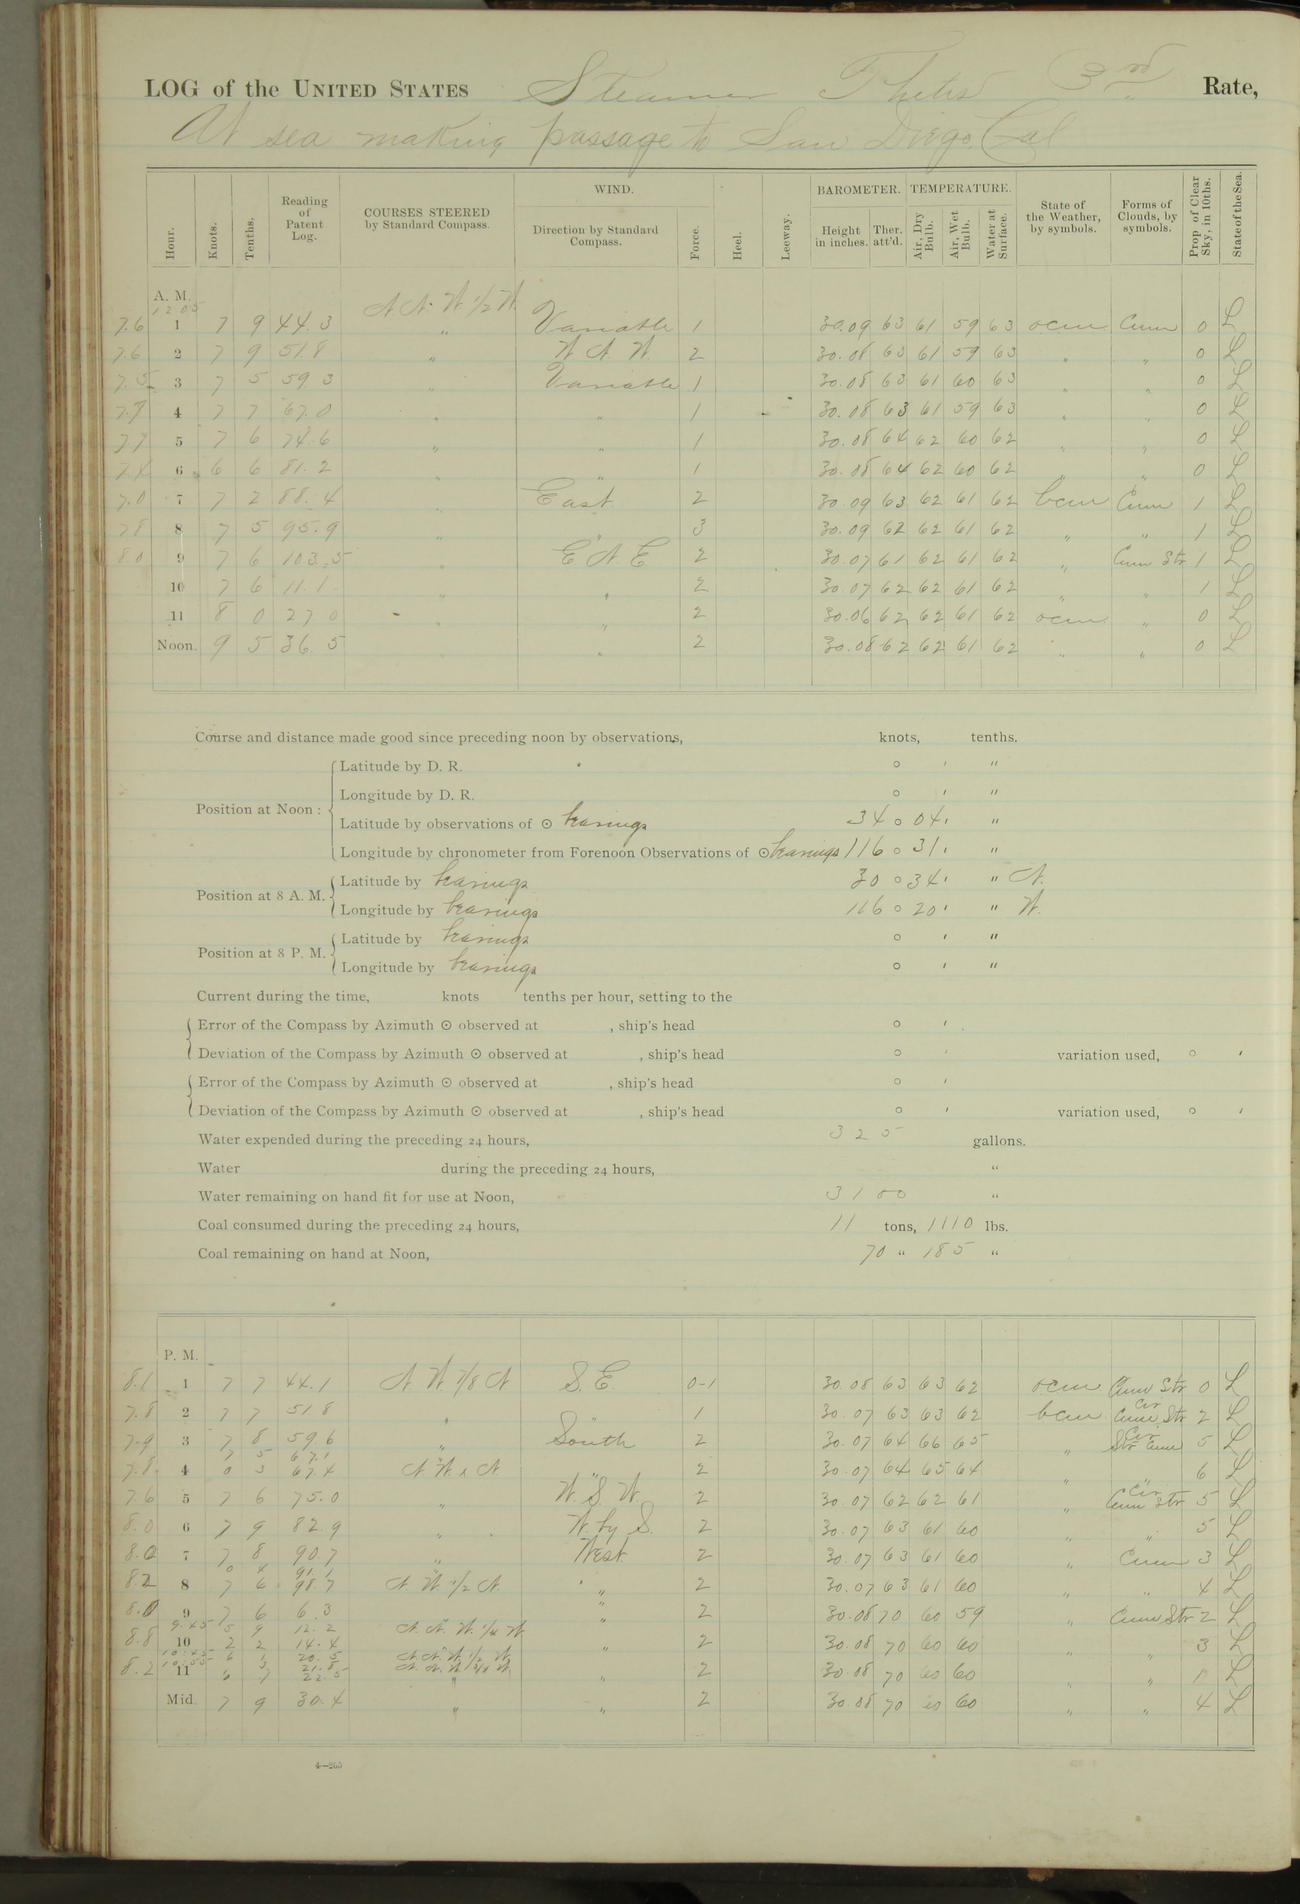 LOG of the UNITED STATES Steamer Thetis 3rd Rate,
At sea making passage to San Diego, Cal
Hour. Knots. Tenths. Reading of Patent Log. COURSES STEERED by Standard Compass. WIND. Direction by Standard Compass. Force. Heel. Leeway. BAROMETER. Height in inches. Ther. att'd. TEMPERATURE. Air, Dry Bulb. Air, Wet Bulb. Water at Surface. State of the Weather, by symbols. Forms of Clouds, by symbols. Prop of Clear Sky, in 10ths. State of the Sea.
A. M.
12 05 N N. W 1/2 W
7.6 1 7 9 44.3 " Variable 1 30.09 63 61 59 63 ocm Cum 0 L
7.6 2 7 9 51.8 " W N W 2 30.08 63 61 59 63 " " 0 L
7.5 3 7 5 59 3 " Variable 1 30.08 63 61 60 63 " " 0 L
7.9 4 7 7 67.0 " " 1 30.08 63 61 59 63 " " 0 L
7.7 5 7 6 74.6 " " 1 30.08 64 62 60 62 " " 0 L
7.4 6 6 6 81.2 " " 1 30.08 64 62 60 62 " " 0 L
7.0 7 7 2 88.4 " East 2 30.09 63 62 61 62 bcm Cum 1 L
7.8 8 7 5 95.9 " " 3 30.09 62 62 61 62 " " 1 L
8.0 9 7 6 103.5 " E N E 2 30.07 61 62 61 62 " Cum Str 1 L
10 7 6 11.1 " " 2 30.07 62 62 61 62 " " 1 L
11 8 0 27 0 " " 2 30.06 62 62 61 62 ocm " 0 L
Noon. 9 5 36.5 " " 2 30.08 62 62 61 62 " " 0 L
Course and distance made good since preceding noon by observations, knots, tenths.
Position at Noon :
Latitude by D. R. ° ' "
Longitude by D. R. ° ' "
Latitude by observations of ☉ bearings 34 ° 04 ' "
Longitude by chronometer from Forenoon Observations of ☉ bearings 116 ° 31 ' "
Position at 8 A. M.
Latitude by bearings 30 ° 34 ' " N.
Longitude by bearings 116 ° 20 ' " W.
Position at 8 P. M.
Latitude by bearings ° ' "
Longitude by bearings ° ' "
Current during the time, knots tenths per hour, setting to the
Error of the Compass by Azimuth ☉ observed at , ship's head ° '
Deviation of the Compass by Azimuth ☉ observed at , ship's head ° ' variation used, ° '
Error of the Compass by Azimuth ☉ observed at , ship's head ° '
Deviation of the Compass by Azimuth ☉ observed at , ship's head ° ' variation used, ° '
Water expended during the preceding 24 hours, 325 gallons.
Water during the preceding 24 hours, "
Water remaining on hand fit for use at Noon, 3100 "
Coal consumed during the preceding 24 hours, 11 tons, 1110 lbs.
Coal remaining on hand at Noon, 70 " 185 "
P. M.
8.1 1 7 7 44.1 N W 7/8 N S. E. 0-1 30.08 63 63 62 ocm Cum Str 0 L
7.8 2 7 7 51.8 " " 1 30.07 63 63 62 bcm Cir Cum Str 2 L
7.9 3 7 8 59.6 " South 2 30.07 64 66 65 " Cir Str Cum 5 L
7 5 67.1
7.8 4 0 3 67.4 N W x N " 2 30.07 64 65 64 " " 6 L
7.6 5 7 6 75.0 " W. S. W. 2 30.07 62 62 61 " Cir Cum Str 5 L
8.0 6 7 9 82.9 " W. by S. 2 30.07 63 61 60 " " 5 L
8.0 7 7 8 90.7 " West 2 30.07 63 61 60 " Cum 3 L
0 4 91.1
8.2 8 7 6 98.7 N W 1/2 N " 2 30.07 63 61 60 " " 4 L
8.0 9 7 6 6.3 " " 2 30.08 70 60 59 " Cum Str 2 L
9.45 5 9 12.2 N. N. W. 1/4 W
8.8 10 2 2 14.4 " 2 30.08 70 60 60 " " 3 L
6 1 20.5 N. N. W. 1/2 W.
21.8
8.2 11 22.5 " " 2 30.08 70 60 60 " " L
Mid. 7 9 30.4 " " 2 30.08 70 60 60 " " 4 L
4—263